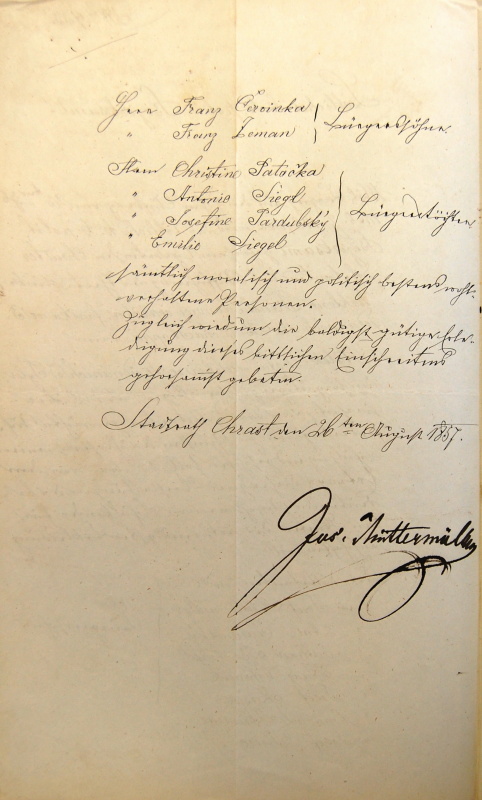 Herr Franz Červinka
" Franz Zeman
Bürgerssöhne
Christine Patočka
" Antonie Siegl
" Josefine Pardubský
" Emilie Siegel
Bürgerstöchter
sämtlich moralisch und politisch bestens wohl-
verhaltene Personen.
Zugleich wird um die baldigst gütige Erle-
digung dieses bittlichen Einschreitens
gehorsamst gebeten.
Stadtrath Chrast den 26ten August 1857.
Jos.